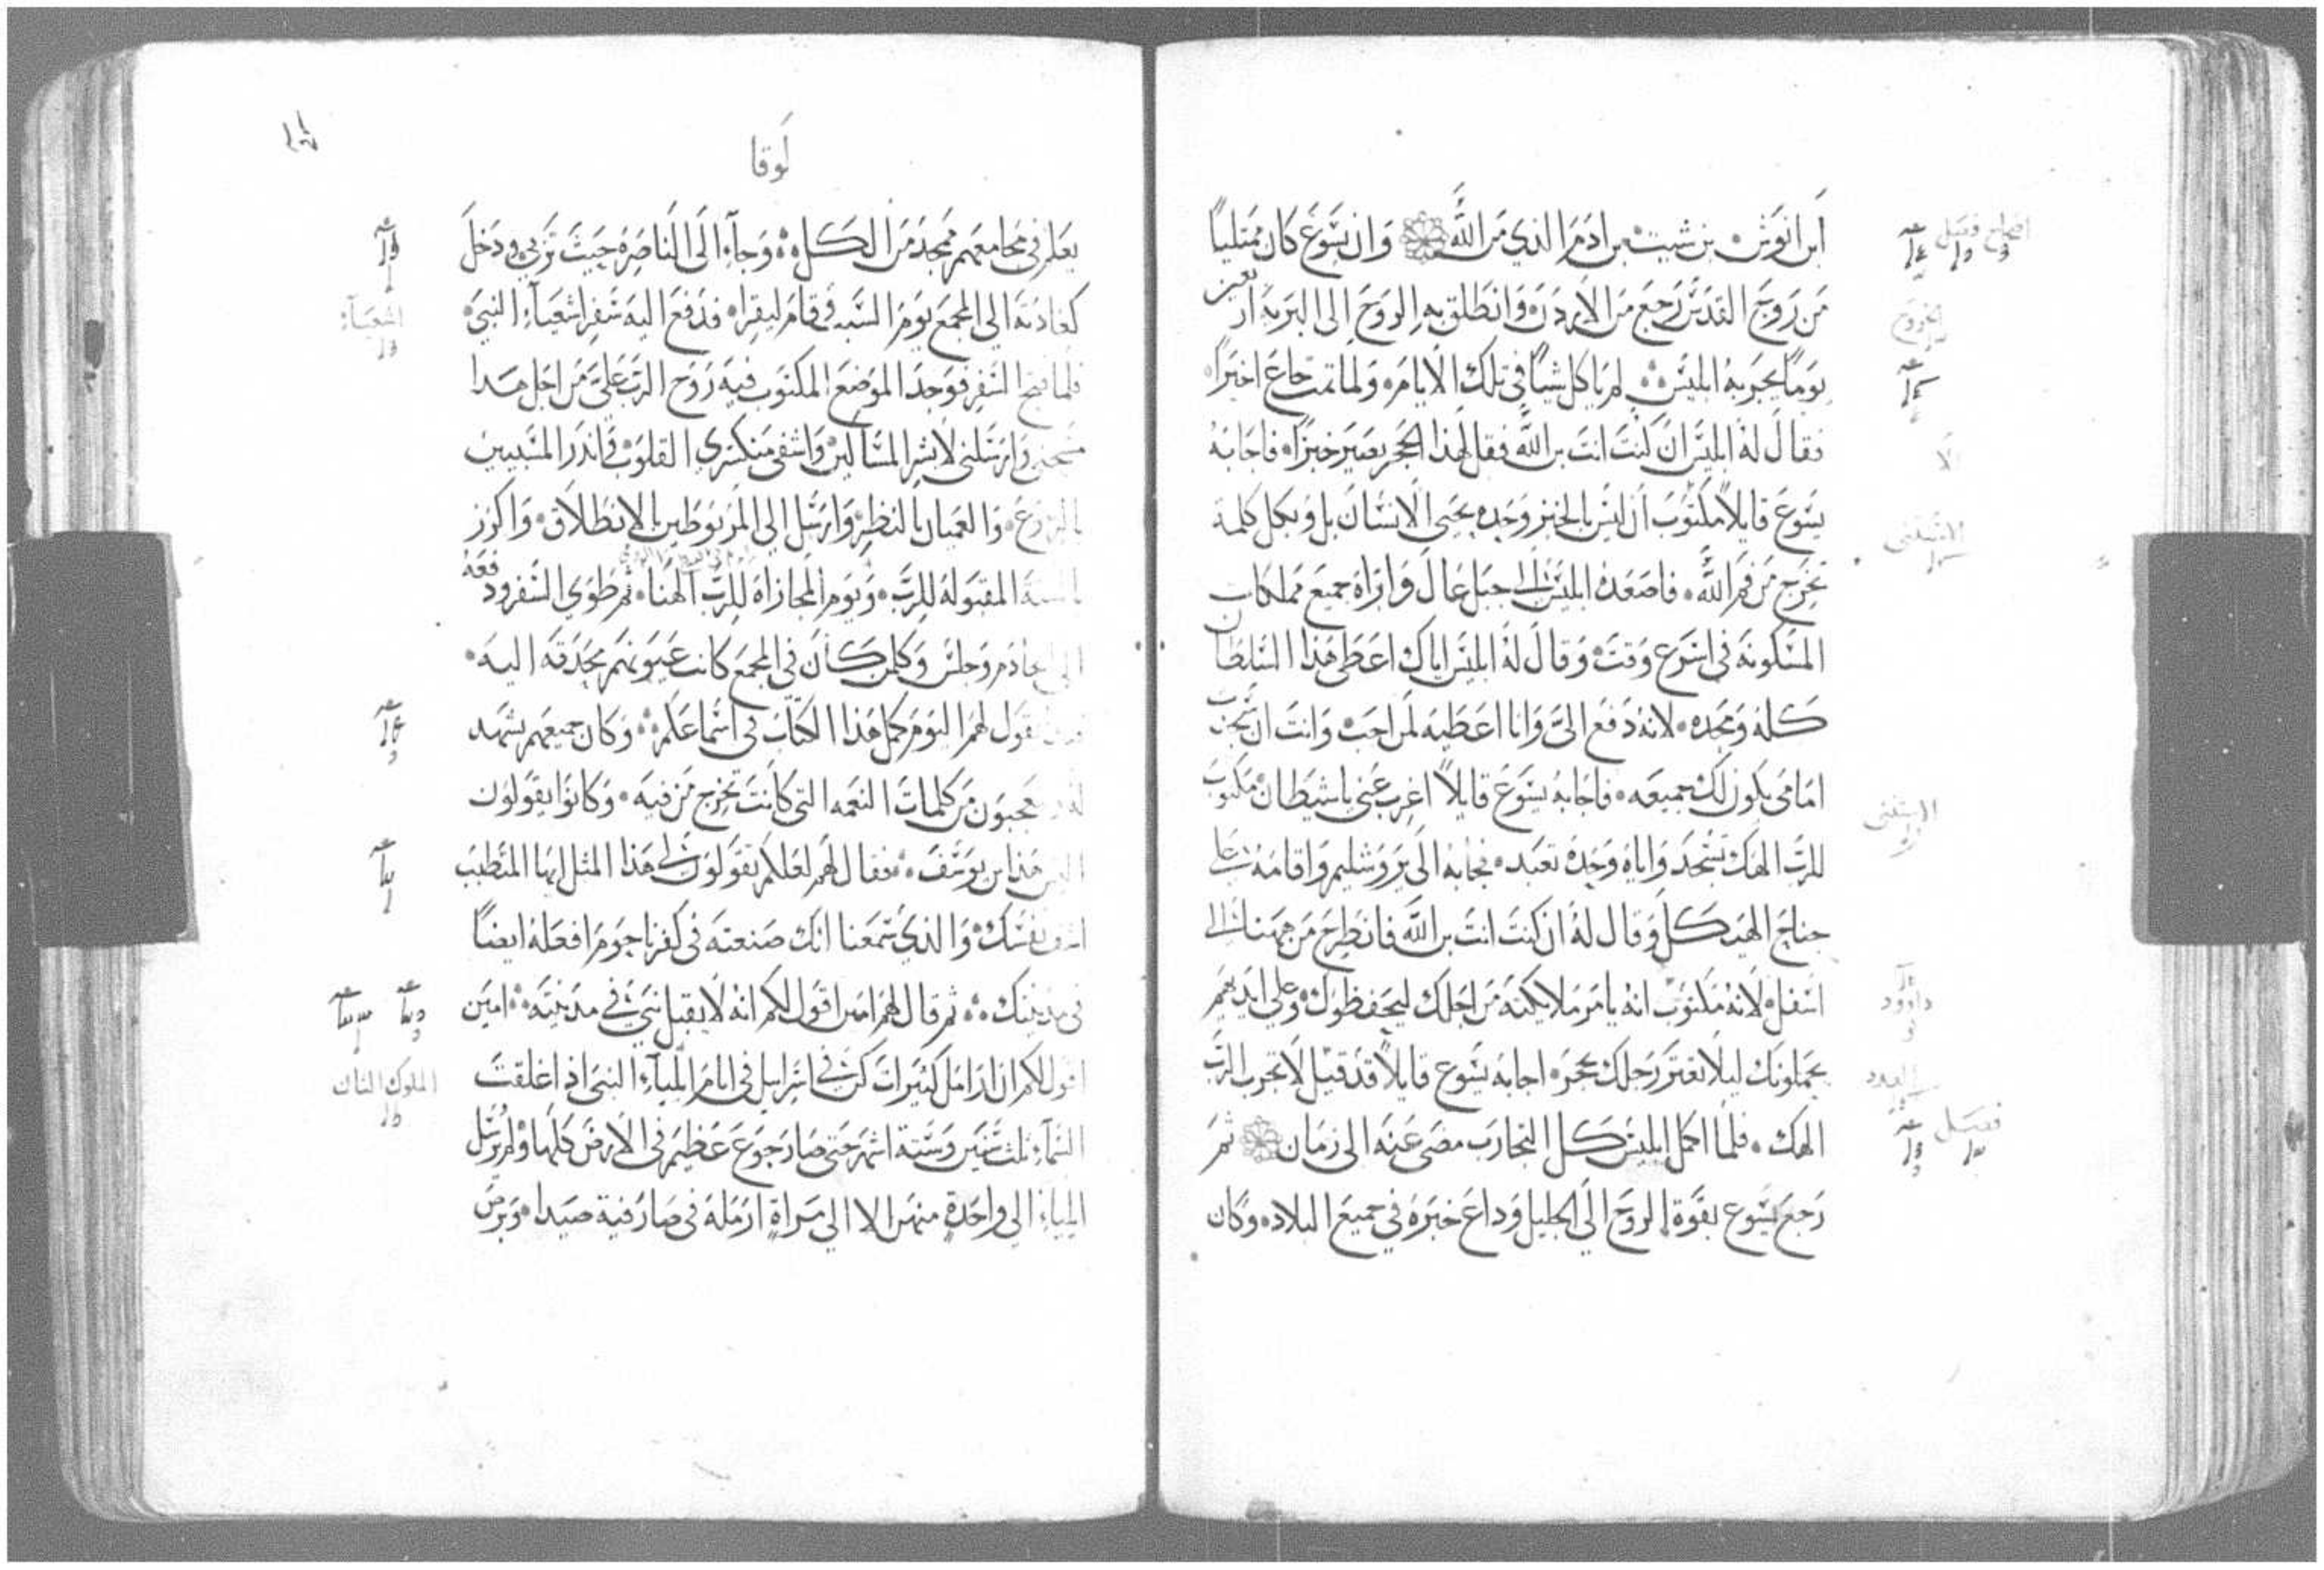 ابن انوش بن شيت بن ادم الذي من الله وان يسوع كان ممتليا
من روح القدس رجع من الاردن وانطلق به الروح الى البرية اربعين
يوما يجربه ابليس لم ياكل شيا في تلك الايام ولما تمت جاع اخيرا
فقال له ابليس ان كنت انت بن الله فقل لهذا الحجر يصير خبزا فاجابه
يسوع قايلا مكتوب ان ليس بالخبز وحده يحيى الانسان بل وبكل كلمة
تخرج من فم الله فاصعده ابليس الى جبل عال واراه جميع مملكات
المسكونة في اسرع وقت وقال له ابليس اياك اعطى هذا السلطان
كله ومجده لانه دفع الى وانا اعطيه لمن احب وانت ان سجدت
امامى يكون لك جميعه فاجابه يسوع قايلا اغرب عني ياشيطان مكتوب
للرب الهك تسجد واياه وحده تعبد فجابه الى يروشليم واقامه على
جناح الهيكل وقال له ان كنت انت بن الله فانطرح من ههنا الى
اسفل لانه مكتوب انه يامر ملايكته من اجلك ليحفظوك وعلى ايديهم
يحملونك ليلا تعتر رجلك بحجر اجابه يسوع قايلا قد قيل لا تجرب الرب
الهك فلما اكمل ابليس كل التجارب مضى عنه الى زمان ثم
رجع يسوع بقوة الروح الى الجليل وداع خبره في جميع البلاد وكان
اصحاح فصل
الخروج
الا
الاستثنى
الاستثنى
داوود
العدد
فصل
لوقا
يعلم في مجامعهم ممجد من الكل وجآء الى الناصره حيث تربي ودخل
كعادته الي المجمع يوم السبت في قام ليقرا فدفع اليه سفر اشعيآء النبي
فلما فتح السفر فوجد الموضع المكتوب فيه روح الرب على من اجل هدا
مسحني وارسلني لابشر المساكين واشفى منكسري القلوب وانذر المسبيين
والعميان بالنظر وارسل الي المربوطين بالانطلاق واكرز
المقبوله للرب ويوم المجازاه للرب الهنا ثم طوي السفر ودفعه
الى الخادم وجلس وكلمن كان في المجمع كانت عيونهم محدقه اليه
يقول لهم اليوم كمل هذا الكتاب في اسماعكم وكان جميعهم يشهد
يعجبون من كلمات النعمه التي كانت تخرج من فيه وكانوا يقولون
اليس هذا بن يوسف فقال لهم لعلكم تقولون لي هذا المثل ايها المتطبب
اشف نفسك والذي سمعنا انك صنعته في كفرناحوم افعله ايضا
في مدينتك ثم قال لهم امين اقول لكم انه لا يقبل نبي في مدينته امين
اقول لكم ان ارامل كثيرات كن في اسرايل في ايام الميآء النبي اذ اغلقت
السمآء ثلث سنين وستة اشهر حتى صار جوع عظيم في الارض كلها ولم يرسل
ايلياء الي واحدة منهن الا الي مراة ارمله في صارفية صيدا وبرص
اشعيآء
الملوك الثان